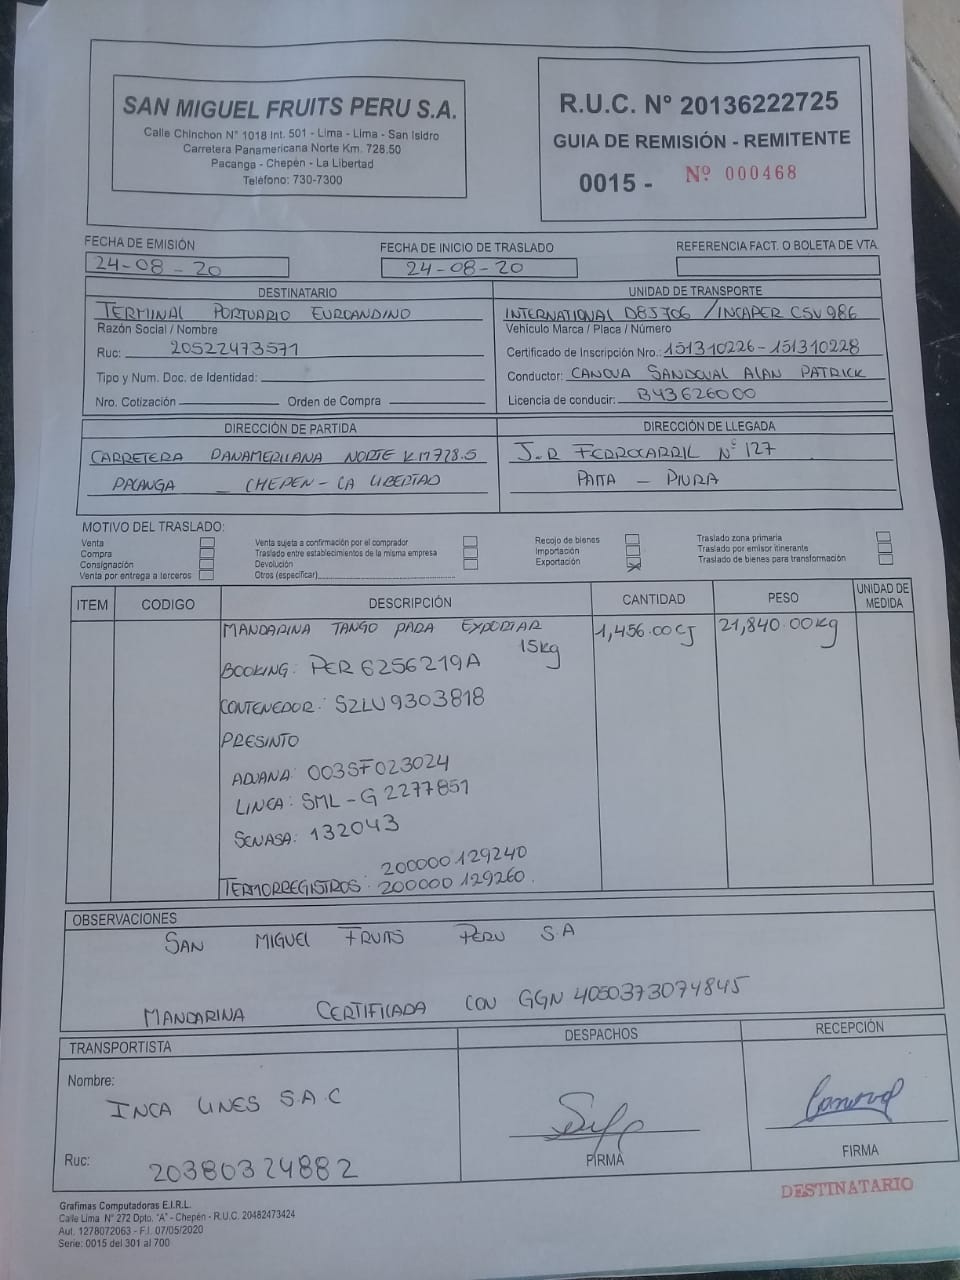 SAN MIGUEL FRUITS PERU S.A.
Calle Chinchon N° 1018 Int. 501 - Lima - Lima - San Isidro
Carretera Panamericana Norte Km. 728.50
Pacanga - Chepén - La Libertad
Teléfono: 730-7300
R.U.C. N° 20136222725
GUIA DE REMISIÓN - REMITENTE
0015 - Nº 000468
FECHA DE EMISIÓN
24-08-20
FECHA DE INICIO DE TRASLADO
24-08-20
REFERENCIA FACT. O BOLETA DE VTA.
DESTINATARIO
TERMINAL PORTUARIO EUROANDINO
Razón Social / Nombre
Ruc: 20522473571
Tipo y Num. Doc. de Identidad:
Nro. Cotización Orden de Compra
UNIDAD DE TRANSPORTE
INTERNATIONAL D8J706 / INCAPER CSV986
Vehículo Marca / Placa / Número
Certificado de Inscripción Nro.: 151310226-151310228
Conductor: CANOVA SANDOVAL ALAN PATRICK
Licencia de conducir: B43626000
DIRECCIÓN DE PARTIDA
CARRETERA PANAMERICANA NORTE KM728.5
PACANGA - CHEPEN - LA LIBERTAD
DIRECCIÓN DE LLEGADA
J.R FERROCARRIL N° 127
PAITA - PIURA
MOTIVO DEL TRASLADO:
Venta
Compra
Consignación
Venta por entrega a terceros
Venta sujeta a confirmación por el comprador
Traslado entre establecimientos de la misma empresa
Devolución
Otros (especificar)
Recojo de bienes
Importación
Exportación X
Traslado zona primaria
Traslado por emisor itinerante
Traslado de bienes para transformación
ITEM CODIGO DESCRIPCIÓN CANTIDAD PESO UNIDAD DE MEDIDA
MANDARINA TANGO PARA EXPORTAR 1,456.00CJ 21,840.00kg
15kg
BOOKING: PER6256219A
CONTENEDOR: SZLU9303818
PRESINTO
ADUANA: 003SF023024
LINEA: SML-G2277851
SENASA: 132043
200000129240
TERMORREGISTROS: 200000129260.
OBSERVACIONES
SAN MIGUEL FRUITS PERU S.A
MANDARINA CERTIFICADA CON GGN 4050373074845
TRANSPORTISTA
Nombre:
INCA LINES S.A.C
Ruc: 20380324882
DESPACHOS
FIRMA
RECEPCIÓN
FIRMA
DESTINATARIO
Grafimas Computadoras E.I.R.L.
Calle Lima N° 272 Dpto. "A" - Chepén - R.U.C. 20482473424
Aut. 1278072063 - F.I. 07/05/2020
Serie: 0015 del 301 al 700